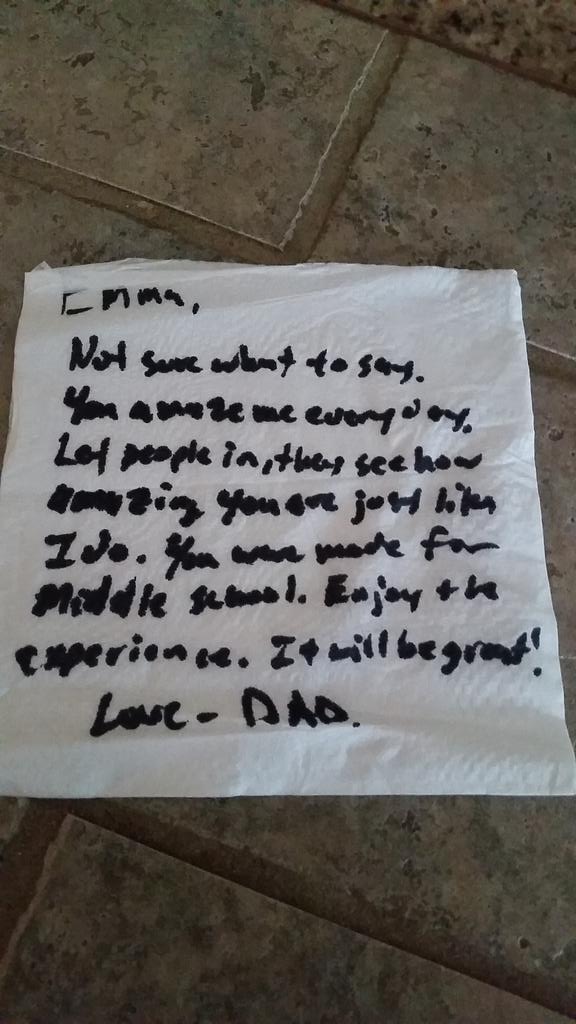 Emma,
Not sure what to say.
You amaze me every day.
Let people in, they see how
amazing you are just like
I do. You were made for
middle school. Enjoy the
experience. It will be great!
Love - DAD.